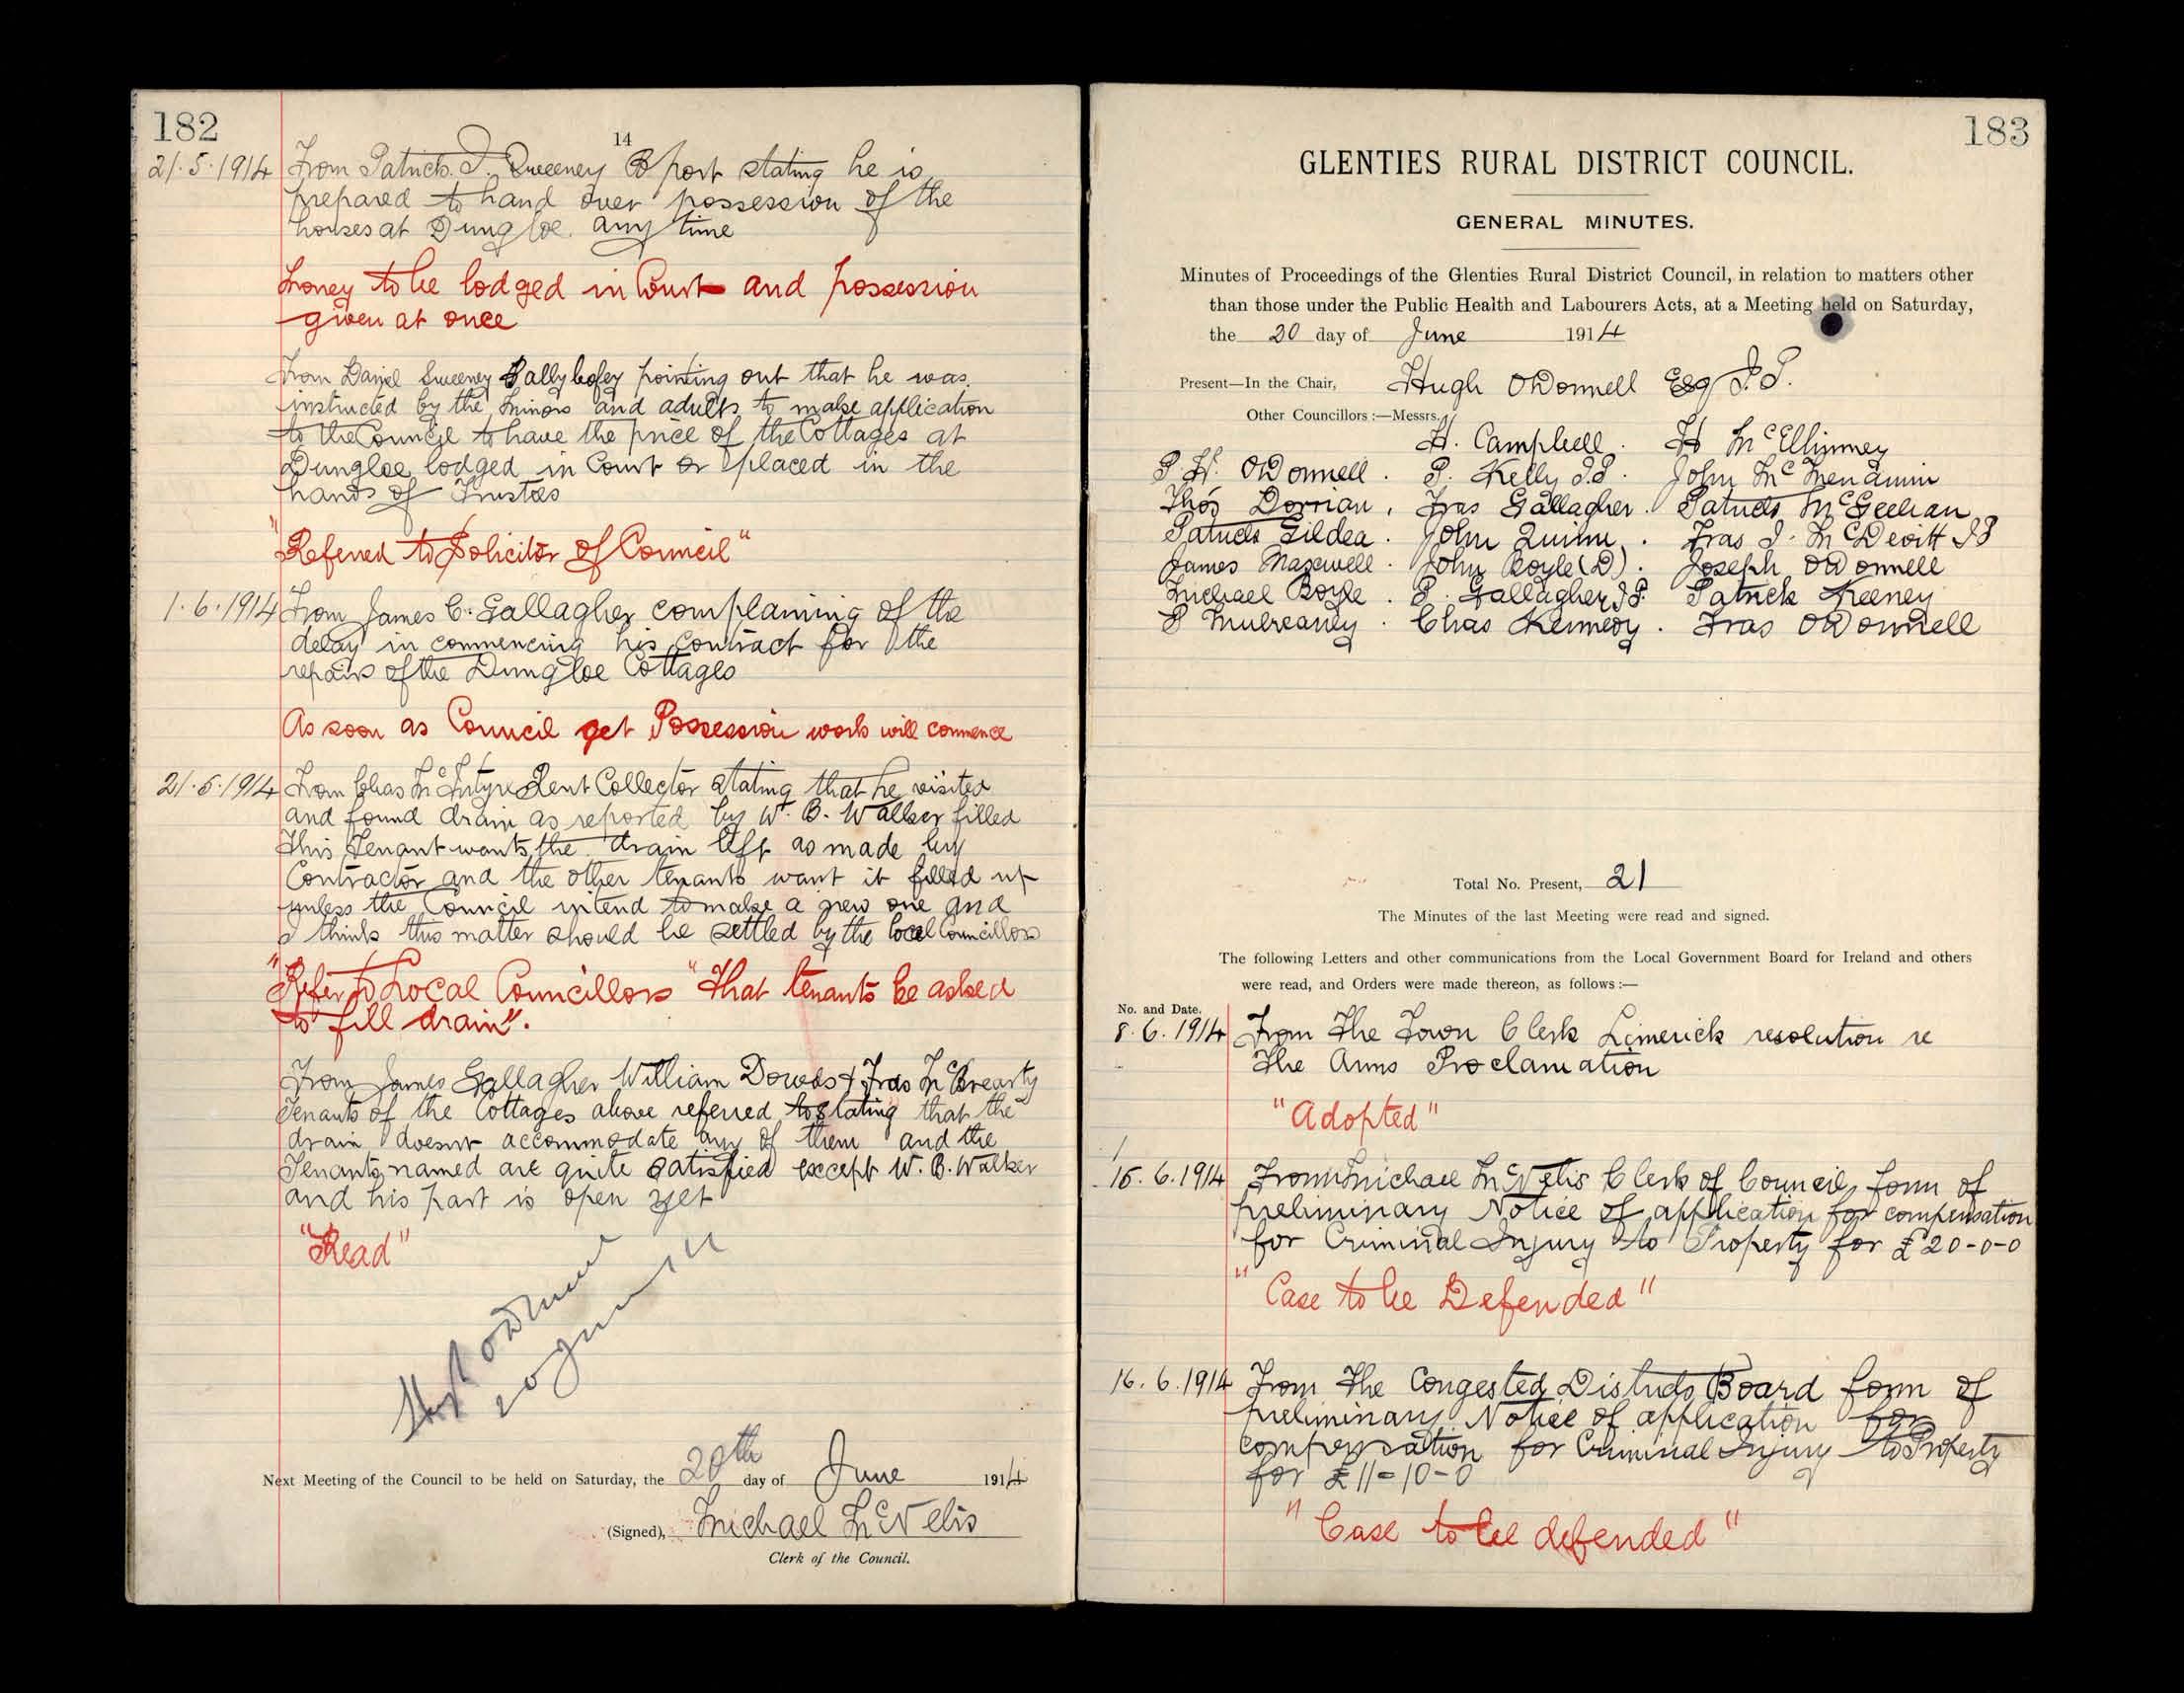 182
14
21.5.1914 From Patrick J. Sweeney B port stating he is
prepared to hand over possession of the
houses at Dungloe any time
Money to be lodged in Court and possession
given at once
From Daniel Sweeney Ballybofey pointing out that he was
instructed by the Minors and adults to make application
to the Council to have the price of the Cottages at
Dungloe lodged in Court or placed in the
hands of Trustees
"Referred to Solicitor of Council"
1.6.1914 From James C. Gallagher complaining of the
delay in commencing his contract for the
repairs of the Dungloe Cottages
As soon as Council get Possession work will commence
21.5.1914 From Chas McIntyre Rent Collector stating that he visited
and found drain as reported by W. B. Walker filled
This Tenant wants the drain left as made by
Contractor and the other tenants want it filled up
unless the Council intend to make a new one and
I think this matter should be settled by the local Councillors
"Refer to Local Councillors "that tenants be asked
to fill drain".
From James Gallagher William Dowds & Fras McBrearty
Tenants of the Cottages above referred to stating that the
drain doesnt accommodate any of them and the
Tenants named are quite satisfied except W. B. Walker
and his part is open yet
"Read"
Hugh O'Donnell
20 June 14
Next Meeting of the Council to be held on Saturday, the 20th day of June 1914
(Signed), Michael McNelis
Clerk of the Council.
183
GLENTIES RURAL DISTRICT COUNCIL.
GENERAL MINUTES.
Minutes of Proceedings of the Glenties Rural District Council, in relation to matters other
than those under the Public Health and Labourers Acts, at a Meeting held on Saturday,
the 20 day of June 1914
Present—In the Chair, Hugh O'Donnell Esq J.P.
Other Councillors:—Messrs.
H. Campbell. H McElhinney
P. H. O'Donnell. P. Kelly J.P. John McMenamin
Thos Dorrian, Fras Gallagher. Patrick McGeehan
Patrick Gildea. John Quinn. Fras J. McDevitt JP
James Maxwell. John Boyle (D). Joseph O'Donnell
Michael Boyle. P. Gallagher J.P. Patrick Keeney
P Mulreaney. Chas Kennedy. Fras O'Donnell
Total No. Present, 21
The Minutes of the last Meeting were read and signed.
The following Letters and other communications from the Local Government Board for Ireland and others
were read, and Orders were made thereon, as follows:—
No. and Date.
8.6.1914 From The Town Clerk Limerick resolution re
The Arms Proclamation
"Adopted"
15.6.1914 From Michael McNelis Clerk of Council form of
preliminary Notice of application for compensation
for Criminal Injury to Property for £20-0-0
"Case to be Defended"
16.6.1914 From The Congested Districts Board form of
preliminary Notice of application for
compensation for Criminal Injury to Property
for £11-10-0
"Case to be defended"